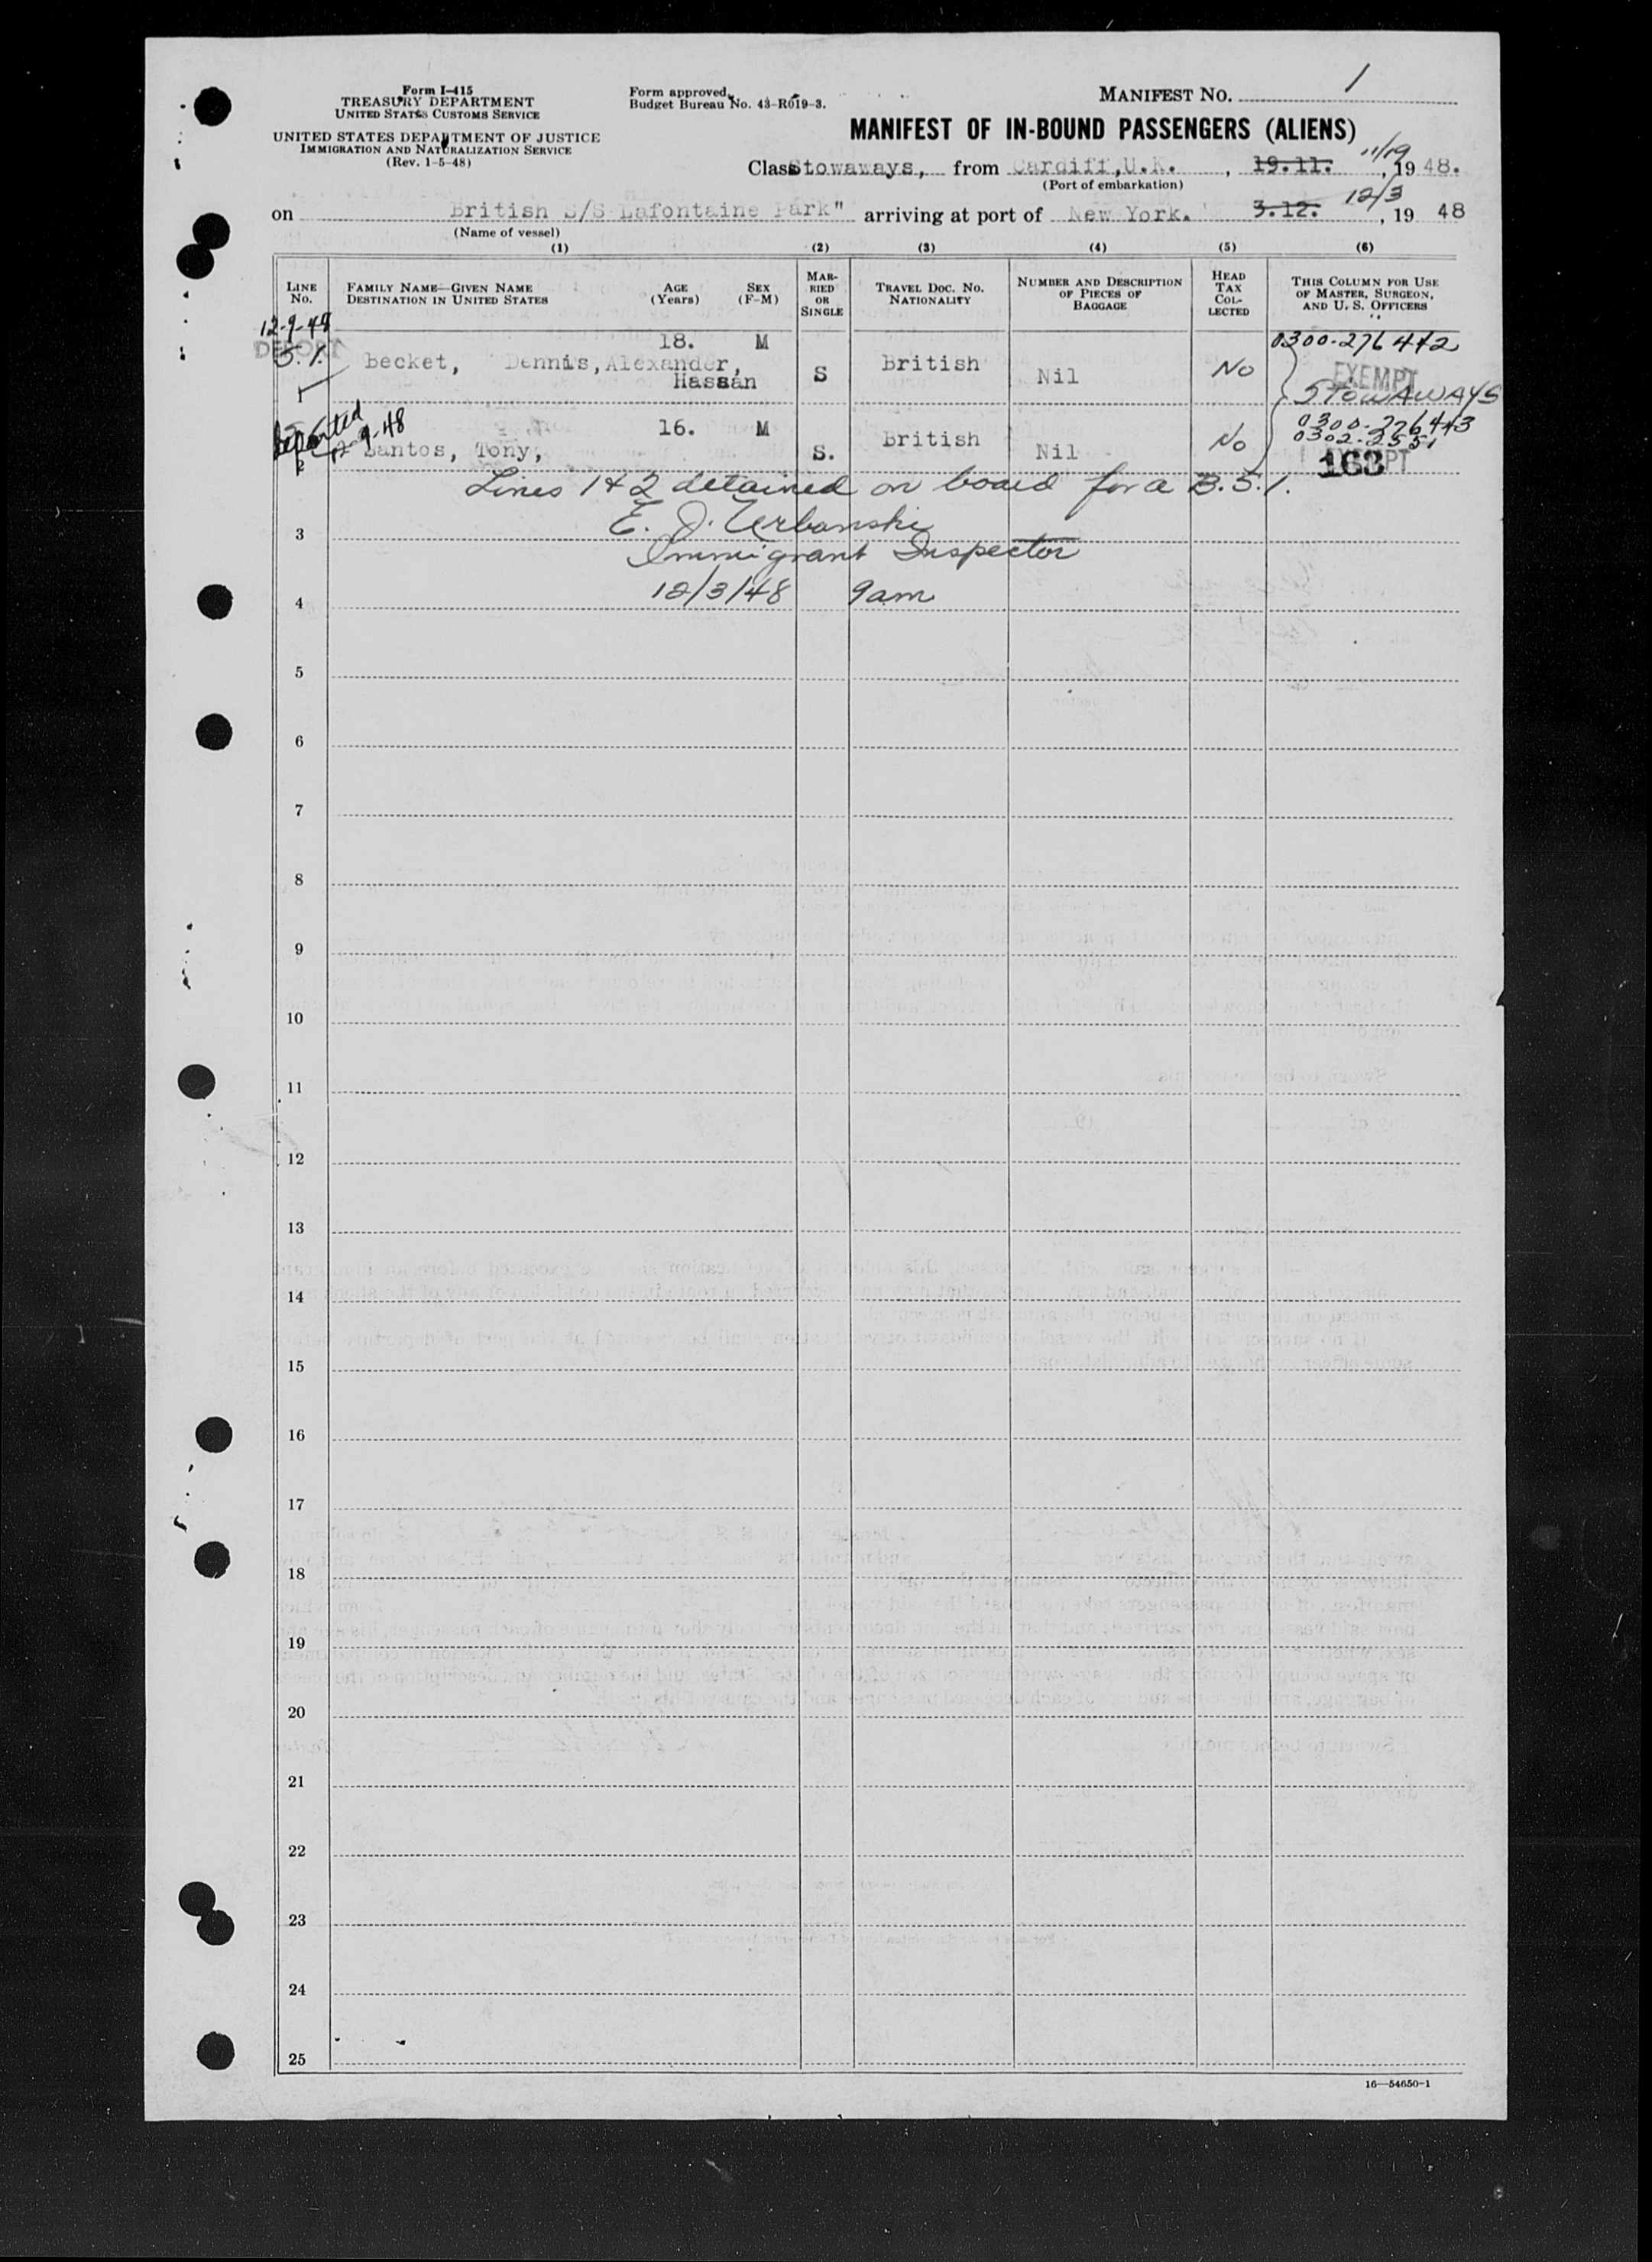 Form I-415
TREASURY DEPARTMENT
UNITED STATES CUSTOMS SERVICE
UNITED STATES DEPARTMENT OF JUSTICE
IMMIGRATION AND NATURALIZATION SERVICE
(Rev. 1-5-48)
Form approved.
Budget Bureau No. 43-R019-3.
MANIFEST NO. 1
MANIFEST OF IN-BOUND PASSENGERS (ALIENS)
Class Stowaways, from Cardiff, U.K. , 19.11. 11/19 , 19 48.
(Port of embarkation)
on British S/S Lafontaine Park" arriving at port of New York. 3.12. 12/3 , 19 48
(Name of vessel)
(1) (2) (3) (4) (5) (6)
LINE No.
FAMILY NAME—GIVEN NAME
DESTINATION IN UNITED STATES
AGE (Years)
SEX (F-M)
MARRIED OR SINGLE
TRAVEL DOC. NO.
NATIONALITY
NUMBER AND DESCRIPTION OF PIECES OF BAGGAGE
HEAD TAX COLLECTED
THIS COLUMN FOR USE OF MASTER, SURGEON, AND U. S. OFFICERS
12-9-48
DEPORT
1 Becket, Dennis, Alexander, Hassan 18. M S British Nil No 0300-276442
EXEMPT
STOWAWAYS
Deported
12-9-48
2 Santos, Tony, 16. M S. British Nil No 0300-276443
0302-2551
EXEMPT
163
Lines 1 & 2 detained on board for a B.S.I.
E. J. Urbanski
3
Immigrant Inspector
12/3/48 9am
4
5
6
7
8
9
10
11
12
13
14
15
16
17
18
19
20
21
22
23
24
25
16—54650-1